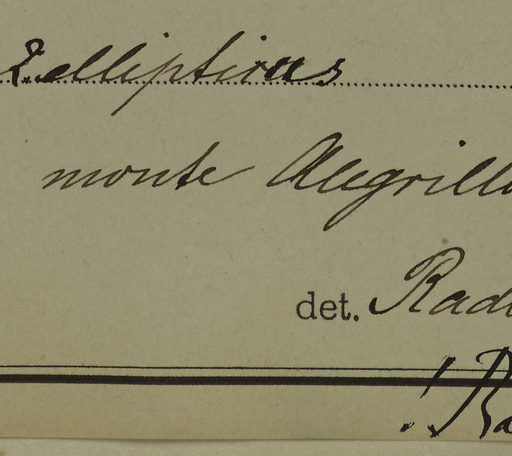 ellipticus
monte Alegrill
det. Rad
! R